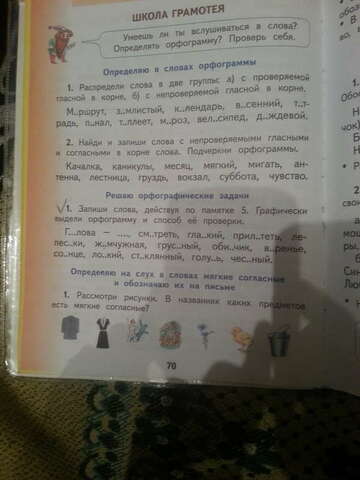 ШКОЛА ГРАМОТЕЯ
Умеешь ли ты вслушиваться в слова?
Определять орфограмму? Проверь себя.
Определяю в словах орфограммы
1. Распредели слова в две группы: а) с проверяемой
гласной в корне, б) с непроверяемой гласной в корне.
М..ршрут, з..млистый, к..лендарь, в..сенний, т..т-
радь, п..нал, т..плеет, м..роз, вел..сипед, д..ждевой.
2. Найди и запиши слова с непроверяемыми гласными
и согласными в корне слова. Подчеркни орфограммы.
Качалка, каникулы, месяц, мягкий, мигать, ан-
тенна, лестница, груздь, вокзал, суббота, чувство.
Решаю орфографические задачи
1. Запиши слова, действуя по памятке 5. Графически
выдели орфограмму и способ её проверки.
Г...лова — ...., см..треть, гла..кий, прил..теть, ле-
пес..ки, ж..мчужная, грус..ный, оби..чик, в..ренье,
со..нце, ло..кий, ст..клянный, голу..ь, чес..ный.
Определяю на слух в словах мягкие согласные
и обозначаю их на письме
1. Рассмотри рисунки. В названиях каких предметов
есть мягкие согласные?
70